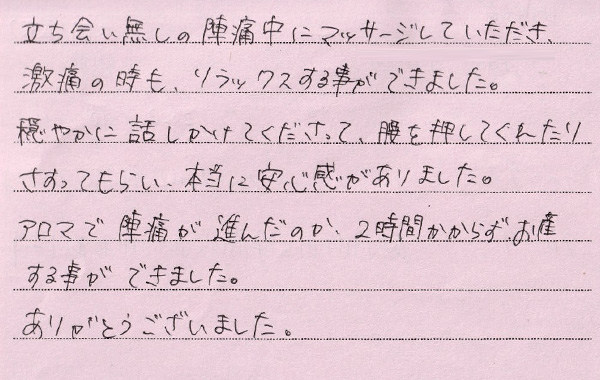 立ち会い無しの陣痛中にマッサージしていただき、
激痛の時も、リラックスする事ができました。
穏やかに話しかけてくださって、腰を押してくれたり
さすってもらい、本当に安心感がありました。
アロマで陣痛が進んだのか、2時間かからずお産
する事ができました。
ありがとうございました。